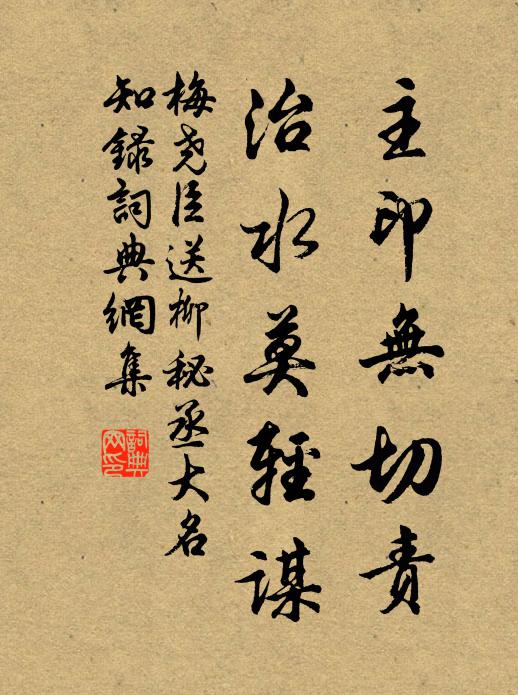 主印無切責
治水莫輕謀
梅堯臣送柳秘丞大名
知錄詞典網集
詞典网印